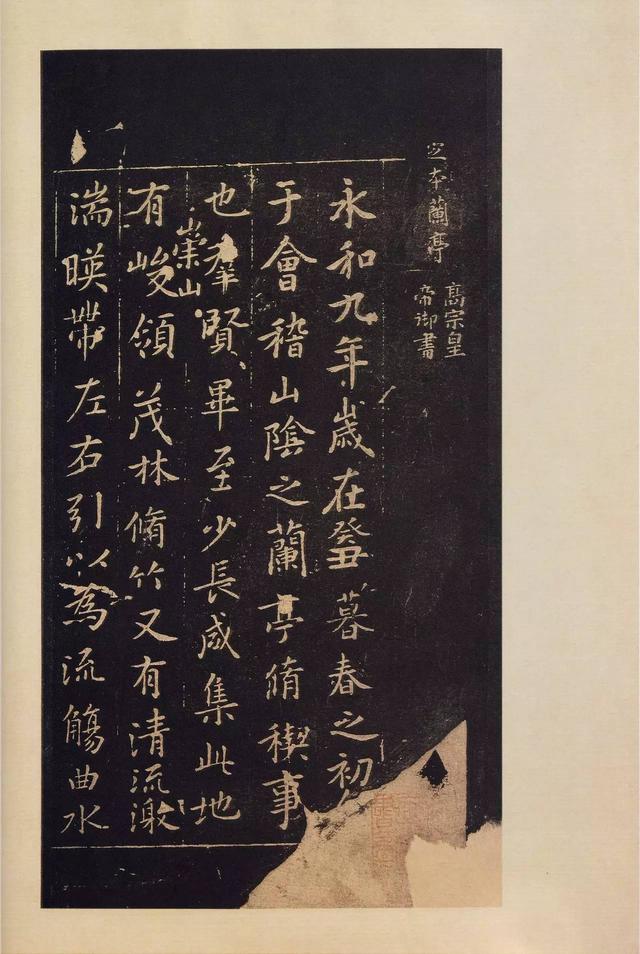 之本蘭亭
高宗皇
帝御書
永和九年歲在癸丑暮春之初
于會稽山陰之蘭亭脩稧事
也羣賢畢至少長咸集此地
有崇山峻領茂林脩竹又有清流激
湍暎帶左右引以為流觴曲水